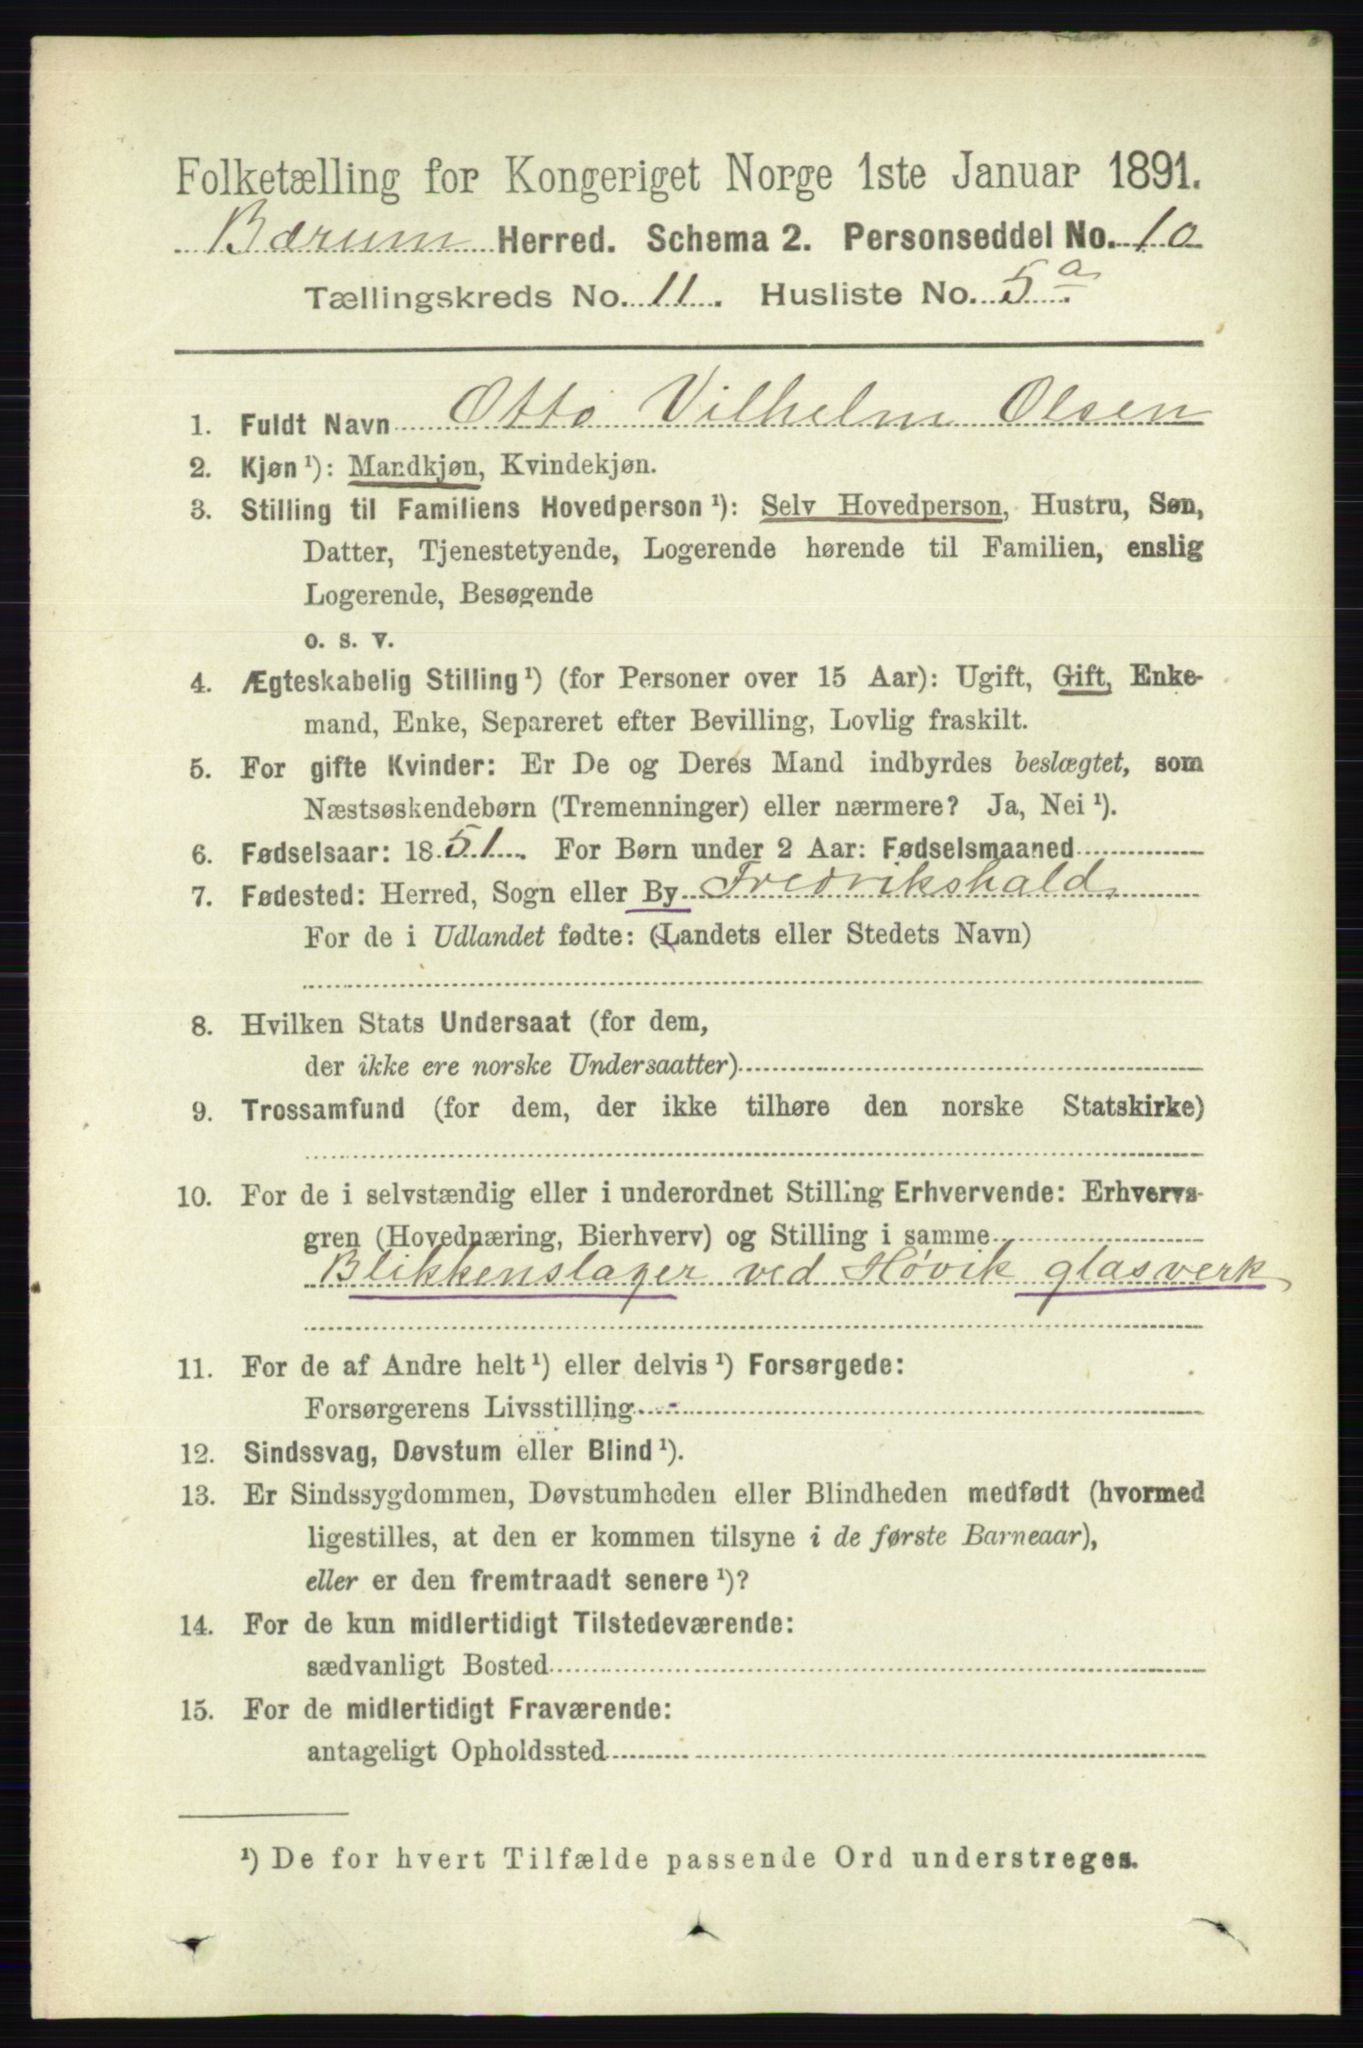 Folketælling for Kongeriget Norge 1ste Januar 1891.
Bærum Herred. Schema 2. Personseddel No. 10
Tællingskreds No. 11. Husliste No. 5a.
1. Fuldt Navn Otto Vilhelm Olsen
2. Kjøn ¹): Mandkjøn, Kvindekjøn.
3. Stilling til Familiens Hovedperson ¹): Selv Hovedperson, Hustru, Søn,
Datter, Tjenestetyende, Logerende hørende til Familien, enslig
Logerende, Besøgende
o. s. v.
4. Ægteskabelig Stilling ¹) (for Personer over 15 Aar): Ugift, Gift, Enke-
mand, Enke, Separeret efter Bevilling, Lovlig fraskilt.
5. For gifte Kvinder: Er De og Deres Mand indbyrdes beslægtet, som
Næstsøskendebørn (Tremenninger) eller nærmere? Ja, Nei ¹).
6. Fødselsaar: 1851. For Børn under 2 Aar: Fødselsmaaned
7. Fødested: Herred, Sogn eller By Fredrikshald,
For de i Udlandet fødte: (Landets eller Stedets Navn)
8. Hvilken Stats Undersaat (for dem,
der ikke ere norske Undersaatter)
9. Trossamfund (for dem, der ikke tilhøre den norske Statskirke)
10. For de i selvstændig eller i underordnet Stilling Erhvervende: Erhvervs-
gren (Hovednæring, Bierhverv) og Stilling i samme
Blikkenslager ved Høvik glasverk
11. For de af Andre helt ¹) eller delvis ¹) Forsørgede:
Forsørgerens Livsstilling -
12. Sindssvag, Døvstum eller Blind ¹).
13. Er Sindssygdommen, Døvstumheden eller Blindheden medfødt (hvormed
ligestilles, at den er kommen tilsyne i de første Barneaar),
eller er den fremtraadt senere ¹)?
14. For de kun midlertidigt Tilstedeværende:
sædvanligt Bosted
15. For de midlertidigt Fraværende:
antageligt Opholdssted
¹) De for hvert Tilfælde passende Ord understreges.